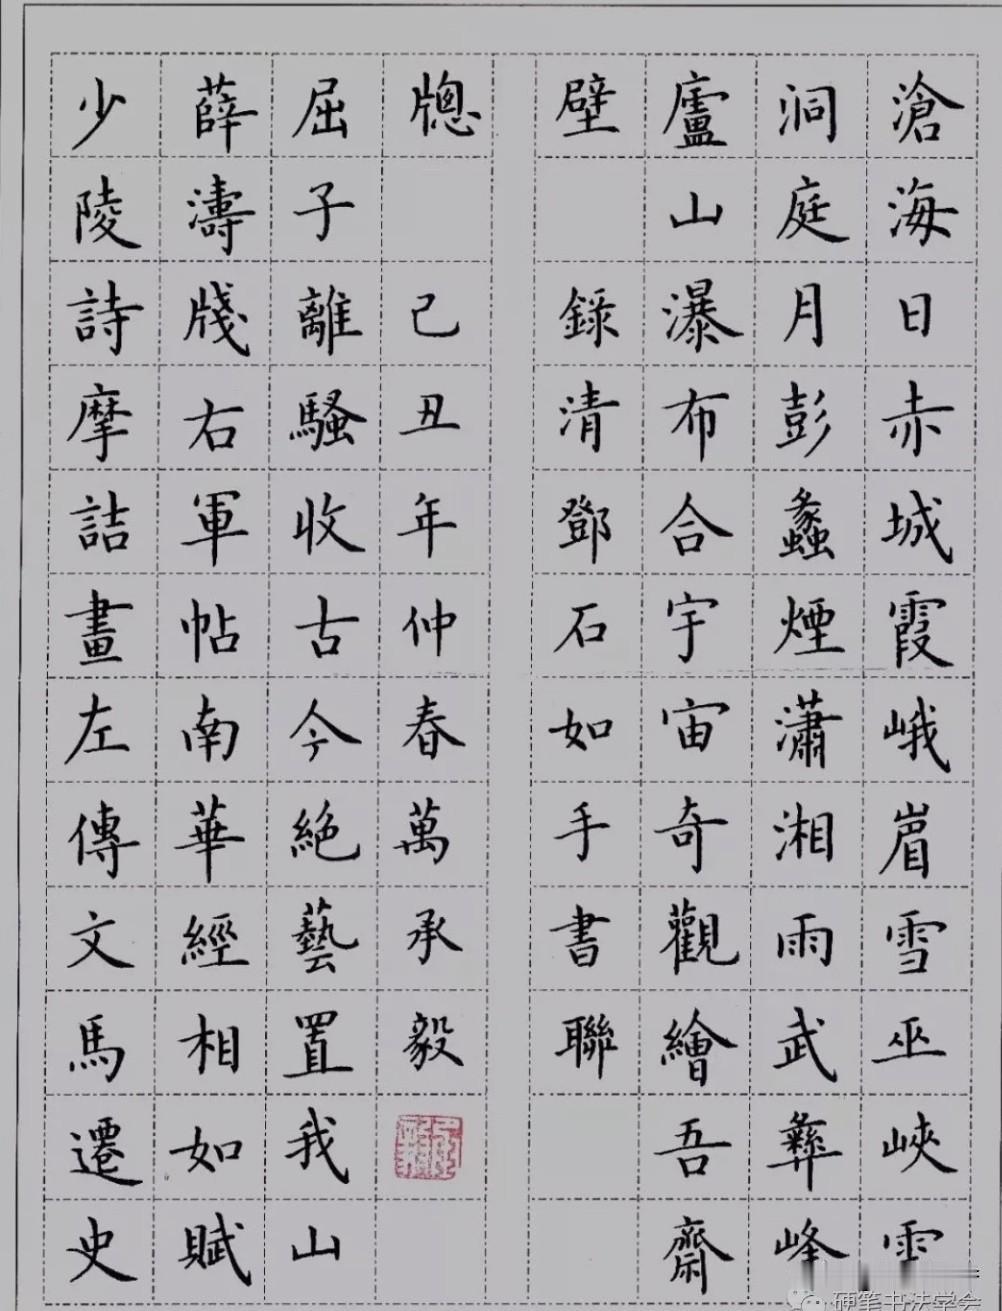 滄海日赤城霞峨嵋雪巫峽雲
洞庭月彭蠡煙瀟湘雨武彝峰
廬山瀑布合宇宙奇觀繪吾齋
壁 錄清鄧石如手書聯
少陵詩摩詰畫左傳文馬遷史
薛濤牋右軍帖南華經相如賦
屈子離騷收古今絕藝置我山
牕 己丑年仲春萬承毅
硬笔书法学会